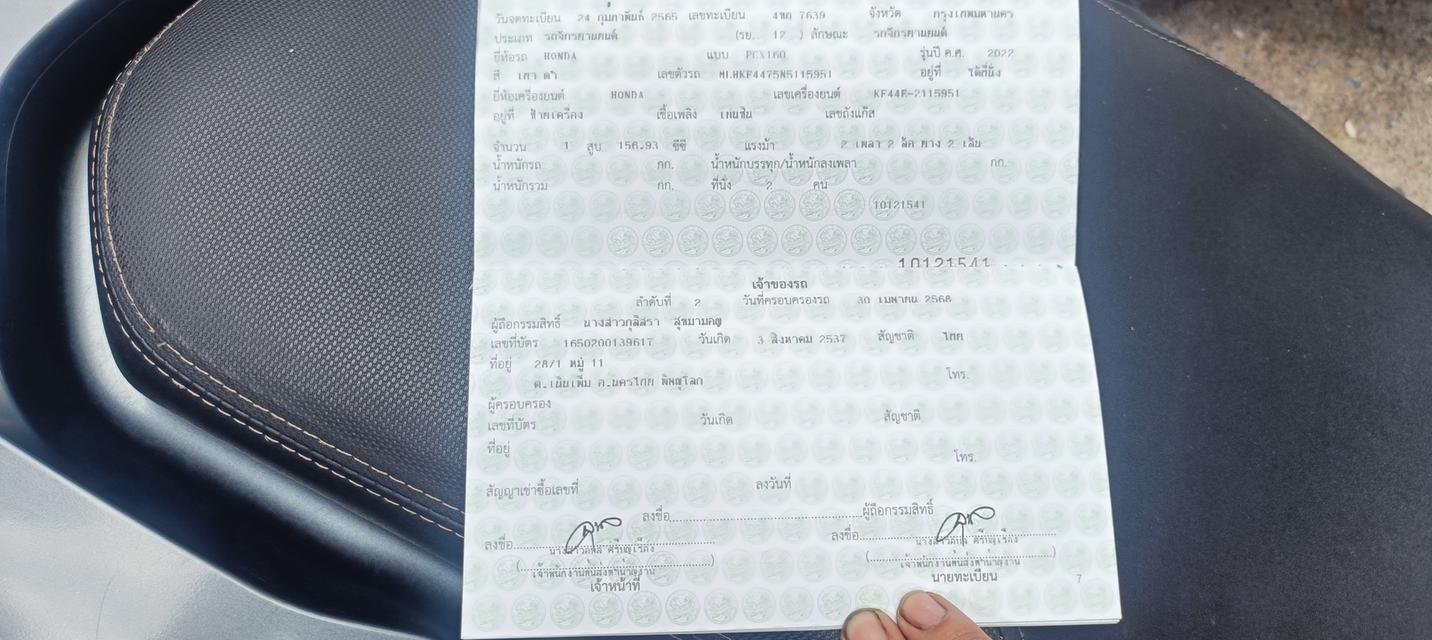 วันจดทะเบียน 24 กุมภาพันธ์ 2565 เลขทะเบียน 4ขก 7639 จังหวัด กรุงเทพมหานคร
ประเภท รถจักรยานยนต์ (รย. 12 ) ลักษณะ รถจักรยานยนต์
ยี่ห้อรถ HONDA แบบ PCX160 รุ่นปี ค.ศ. 2022
สี เทา ดำ เลขตัวรถ MLHKF4475N5115951 อยู่ที่ ใต้ที่นั่ง
ยี่ห้อเครื่องยนต์ HONDA เลขเครื่องยนต์ KF44E-2115951
อยู่ที่ ซ้ายเครื่อง เชื้อเพลิง เบนซิน เลขถังแก๊ส
จำนวน 1 สูบ 156.93 ซีซี แรงม้า 2 เพลา 2 ล้อ ยาง 2 เส้น
น้ำหนักรถ กก. น้ำหนักบรรทุก/น้ำหนักลงเพลา กก.
น้ำหนักรวม กก. ที่นั่ง 2 คน
10121541
10121541
เจ้าของรถ
ลำดับที่ 2 วันที่ครอบครองรถ 30 เมษายน 2568
ผู้ถือกรรมสิทธิ์ นางสาวกุลิสรา
เลขที่บัตร 1650200139617 วันเกิด 3 สิงหาคม 2537 สัญชาติ ไทย
ที่อยู่ 28/1 หมู่ 11
ต.เนินเพิ่ม อ.นครไทย พิษณุโลก โทร.
ผู้ครอบครอง
เลขที่บัตร วันเกิด สัญชาติ
ที่อยู่
โทร.
สัญญาเช่าซื้อเลขที่ ลงวันที่
ลงชื่อ ผู้ถือกรรมสิทธิ์
ลงชื่อ ลงชื่อ
เจ้าหน้าที่ นายทะเบียน
7